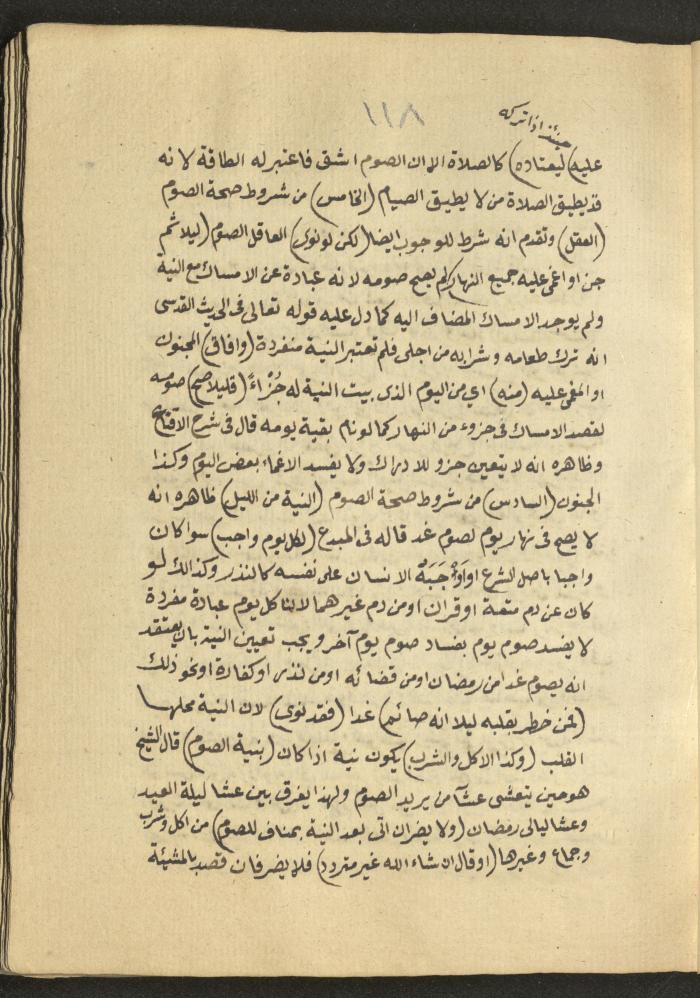 ١١٨
حينئذ اذا تركه
عليه (ليعتاده) كالصلاة الا ان الصوم اشق فاعتبر له الطاقة لانه
قد يطيق الصلاة من لا يطيق الصيام (الخامس) من شروط صحة الصوم
(العقل) وتقدم انه شرط للوجوب ايضا (لكن لو نوى) العاقل الصوم (ليلا ثم
جن او اغمى عليه جميع النهار) لم يصح صومه لانه عبادة عن الامساك مع النية
ولم يوجد الامساك المضاف اليه كما دل عليه قوله تعالى فى الحديث القدسى
انه ترك طعامه وشرابه من اجلى فلم تعتبر النية منفردة (وافاق) المجنون
او المغمى عليه (منه) اي من اليوم الذى بيت النية له جُزْاءً (قليلا صح) صومه
لقصد الامساك فى جزوء من النهار كما لو نام بقية يومه قال فى شرح الاقناع
وظاهره انه لا يتعين جزو للادراك ولا يفسد الاغماء بعض اليوم وكذا
الجنون (السادس) من شروط صحة الصوم (النية من الليل) ظاهره انه
لا يصح فى نهار يوم لصوم غد قاله فى المبدع (لكل يوم واجب) سوا كان
واجبا باصل الشرع او اَوْجَبَهُ الانسان على نفسه كالنذر وكذالك لو
كان عن دم متعة او قران او من دم غيرهما لاننا كل يوم عبادة مفردة
لا يفسد صوم يوم بفساد صوم يوم آخر ويجب تعيين النية بان يعتقد
انه يصوم غدا من رمضان او من قضائه او من نذر او كفارة او نحو ذلك
(فمن خطر بقلبه ليلا انه صائم) غدا (فقد نوى) لان النية محلها
القلب (وكذا الاكل والشرب) يكون نية اذا كان (بنية الصوم) قال الشيخ
هو حين يتعشى عشآ من يريد الصوم ولهذا يفرق بين عشا ليلة العيد
وعشا ليالى رمضان (ولا يضر ان اتى بعد النية بمناف للصوم) من اكل وشرب
وجماع وغيرها (او قال ان شاء الله غير متردد) فلا يضر فان قصد بالمشيئة